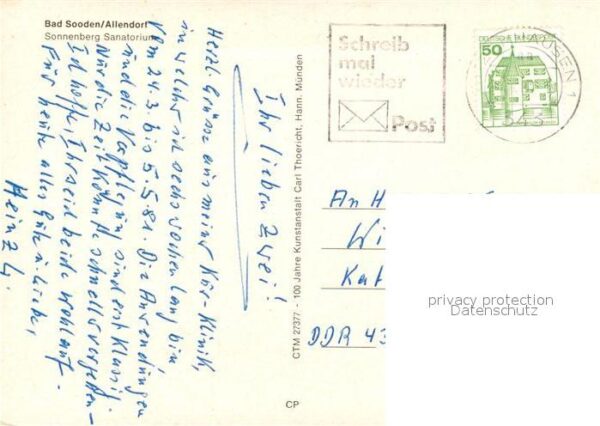 Bad Sooden/Allendorf
Sonnenberg Sanatorium
Ihr lieben Zwei!
Herzl. Grüsse aus meiner Kur-Klinik,
in welcher ich sechs Wochen lang bin
vom 24.3. bis 5.5.81. Die Anwendungen
und die Verpflegung sind erst klassig.
Nur die Zeit könnte schneller vergehen
Ich hoffe, Ihr seid beide wohlauf.
Für heute alles Gute u. Liebe,
Heinz
CTM 27377 - 100 Jahre Kunstanstalt Carl Thoericht, Hann. Münden
CP
Schreib
mal
wieder
Post
50
DEUTSCHE BUNDESPOST
HAUSEN 1
343
An H
Wi
Kat
DDR 43
privacy protection
Datenschutz